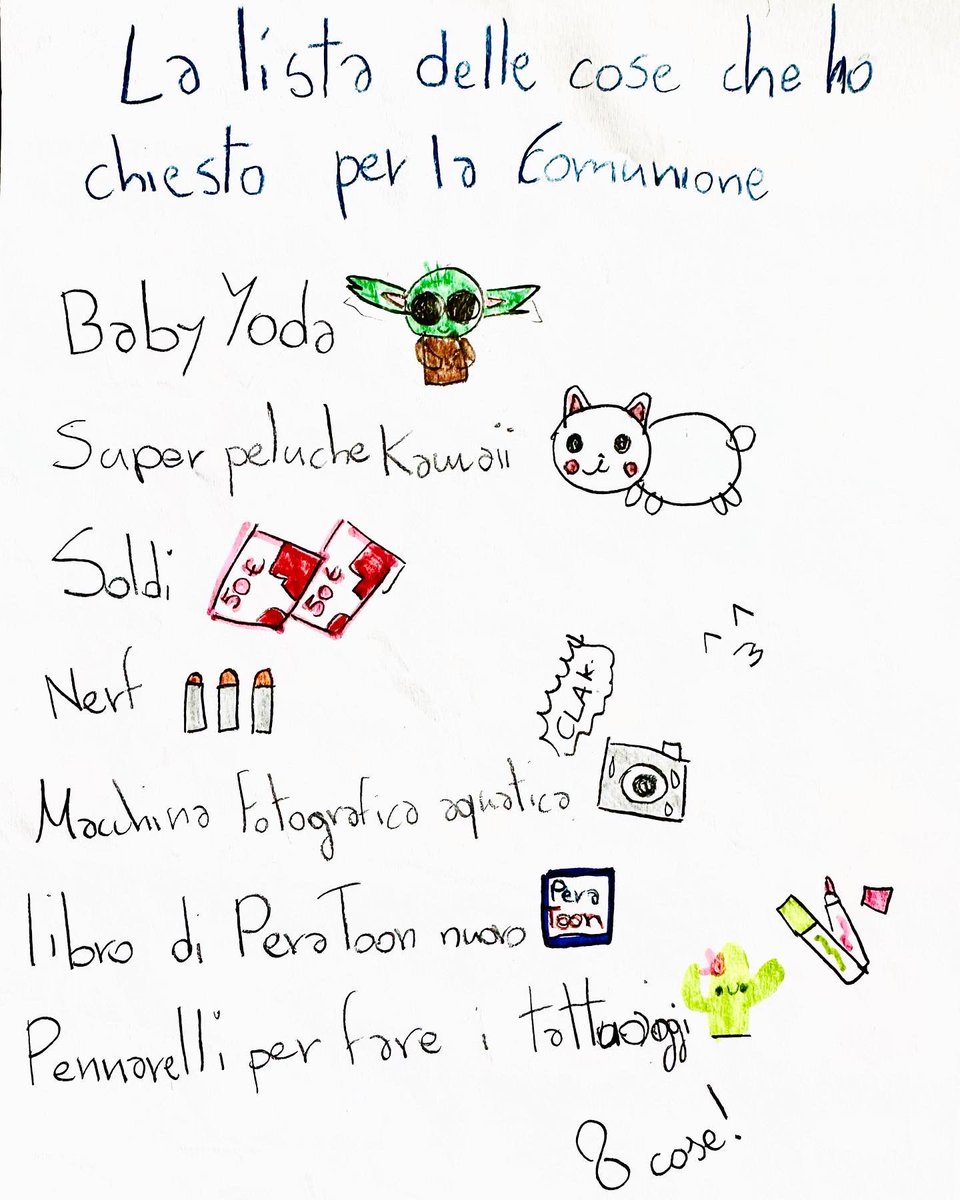 La lista delle cose che ho
chiesto per la Comunione
Baby Yoda
Super peluche Kawaii
Soldi 50€ 50€
Nerf
CLAK.
Macchina fotografica aquatica
libro di Pera Toon nuovo
Pera
Toon
Pennarelli per fare i tattuaggi
8 cose!